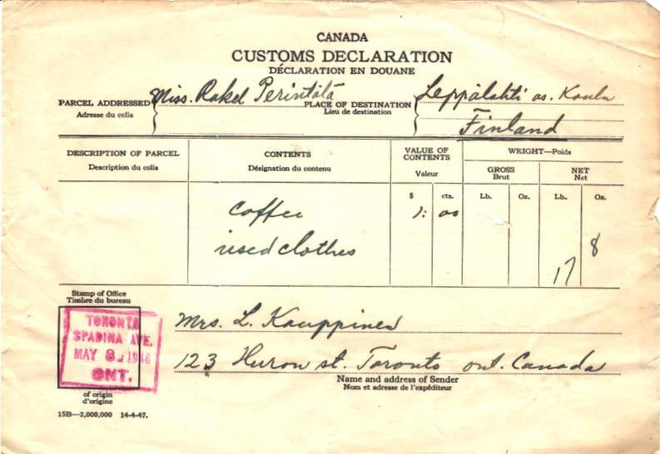 CANADA
CUSTOMS DECLARATION
DÉCLARATION EN DOUANE
PARCEL ADDRESSED Miss. Rakel Perintätä
Adresse du colis
PLACE OF DESTINATION Leppälahti as. Koulu
Lieu de destination
Finland
DESCRIPTION OF PARCEL
Description du colis
CONTENTS
Désignation du contenu
VALUE OF CONTENTS
Valeur
WEIGHT—Poids
GROSS
Brut
NET
Net
$ cts. Lb. Oz. Lb. Oz.
coffee 1: 00
used clothes
17 8
Stamp of Office
Timbre du bureau
TORONTO
SPADINA AVE.
MAY 8 1948
ONT.
of origin
d'origine
Mrs. L. Kauppinen
123 Huron st. Toronto ont. Canada
Name and address of Sender
Nom et adresse de l'expéditeur
15B—2,000,000 14-4-47.